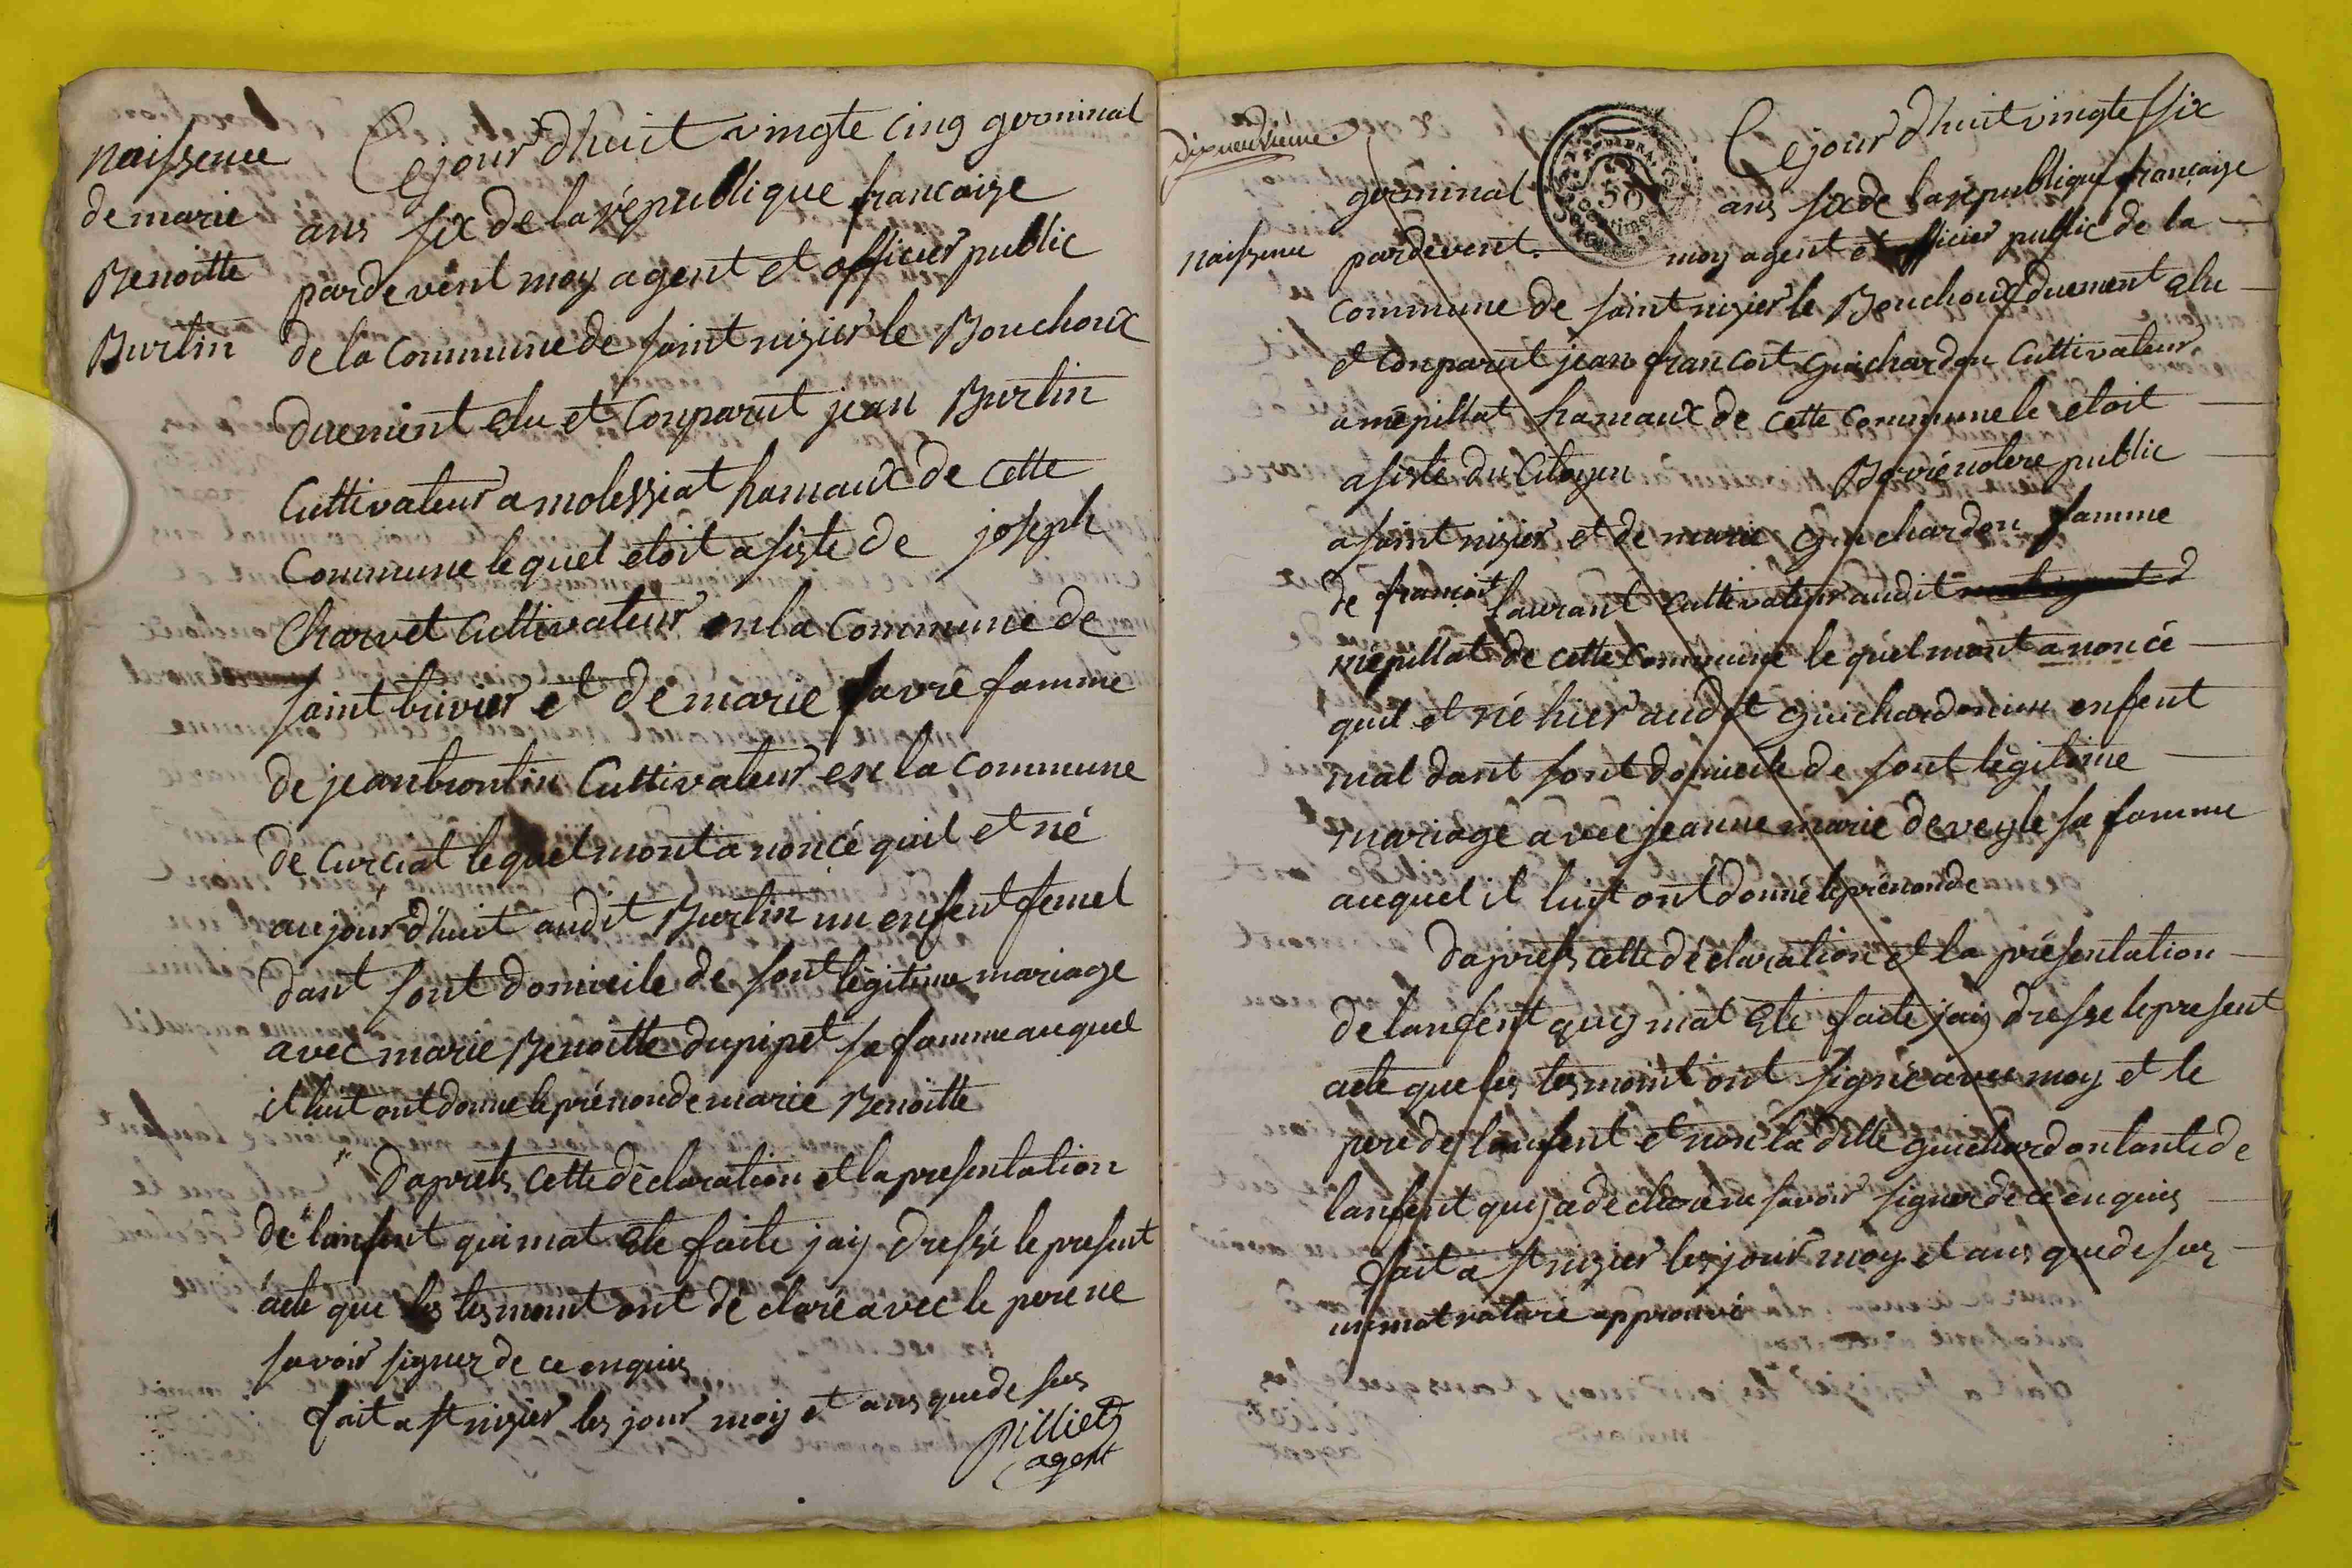 naissence
de marie
Benoitte
Burlin
Cejour dhuit vingte cinq germinal
ans six de la république francaise
pardevent moy agent et officier public
de la Commune de saint nizier le Bouchoux
duement elu et Conparut jean Burlin
Cultivateur a molessiat hamaux de cette
Commune lequel etoit asiste de joseph
Charvet Cultivateur en la Commune de
saint trivier et de marie favre famme
de jean brontin Cultivateur en la Commune
de Curciat lequel mont anoncé quil et né
aujourdhuit audit Burlin un enfent femel
dant sont domicile de sont légitime mariage
avec marie Benoitte dupipet sa famme auquel
il luit ont donné le prénon de marie Benoitte
daprets cette déclaration et la presentation
de lanfent qui mat Ete faite jaiy dressé le present
acte que les tesmoint ont déclaré avec le pere ne
savoir signer de ce enquis
fait a st nizier les jour moiy et ans que de sus
pilliet
agent
dixneuvième
naissence
50
Centimes
Cejour dhuit vingte six
germinal ans six de la republique française
pardevent moy agent et officier public de la
Commune de saint nizier le Bouchoux duement elu
et Conparut jean francoit guichardon Cultivateur
a mépillat hamaux de cette Commune le etoit
asisté du Citoyen notere public
a saint nizier et de marie guichardon famme
de francoit laurant cultivateur audit
mépillat de cette Commune le quel mont anoncé
quil et né hier audit guichardon un enfent
mal dant sont domicile de sont légitime
mariage avec jeanne marie deveyle sa famme
auquel il luit ont donné le prénon de
daprets cette déclaration et la présentation
de lanfent quiy mat Ete faite jaiy dresse le present
acte que les tesmoint ont signé avec moy et le
pere de lanfent et non la ditte guichardon tante de
lanfent quiy a declaré ne savoir signer de ce enquis
fait a st nizier les jour moy et ans que de sus
un mot rature approuvé